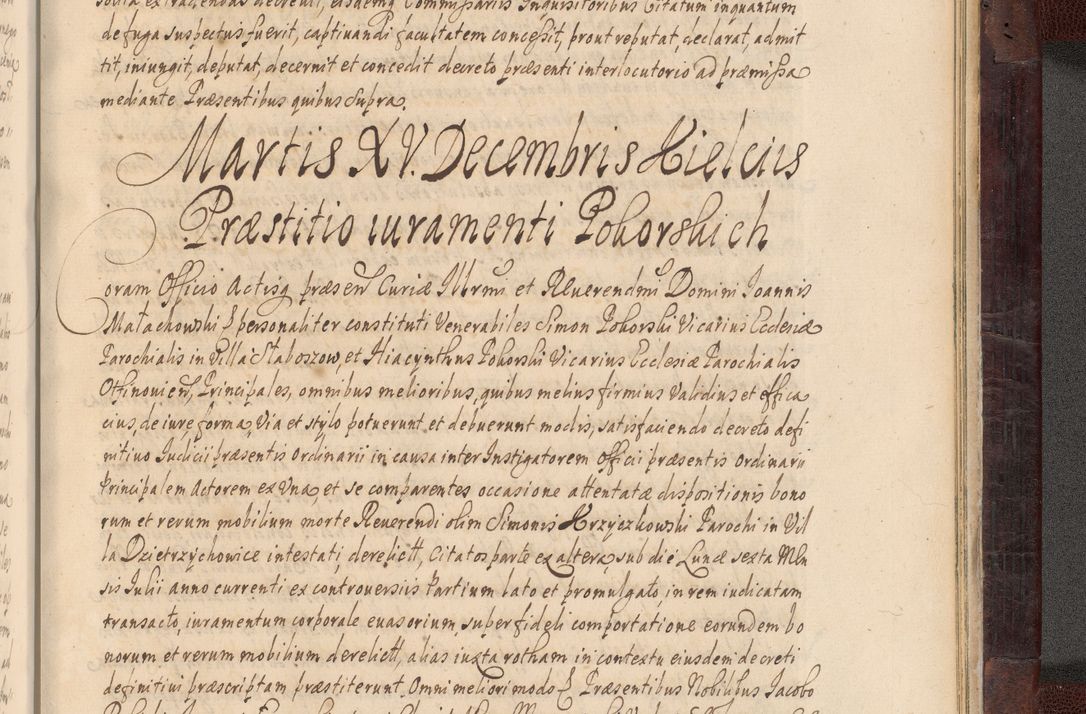 de fuga suspectus fuerit, captivandi facultatem concessit, prout reputat, declarat, admit
tit, iniungit, deputat, decernit et concedit decreto præsenti interlocutorio ad præmissa
mediante Præsentibus quibus supra.
Martis XV. Decembris Kielciis
Præstitio iuramenti Pokorskich
Coram Officio Actisq præsen Curiæ Illrmi et Reverendmi Domini Ioannis
Małachowski personaliter constituti Venerabiles Simon Pokorski Vicarius Ecclesiæ
Parochialis in Villa Słaboszow, et Hiacynthus Pokorski Vicarius Ecclesiæ Parochialis
Otfinovien, Principales, omnibus melioribus, quibus melius firmius validius et effica
cius, de iure, forma, via et stylo potuerunt et debuerunt modis, satisfaciendo decreto defi
nitivo Iudicii præsentis Ordinarii in causa inter Instigatorem Officii præsentis Ordinarii
Principalem Actorem ex una, et se comparentes occasione attentatæ dispositionis bono
rum et rerum mobilium morte Reverendi olim Simonis Krzyczkowski Parochi in Vil
la Dzietrzychowice intestati, derelict, Citatos parte ex altera, sub die Lunæ sexta Men
sis Iulii anno currenti ex controversiis Partium lato et promulgato, in rem iudicatam
transacto, iuramentum corporale evasorium, super fideli comportatione eorundem bo
norum et rerum mobilium derelict, alias iuxta rotham in contextu eiusdem decreti
definitivi præscriptam præstiterunt. Omni meliori modo Præsentibus Nobilibus Iacobo